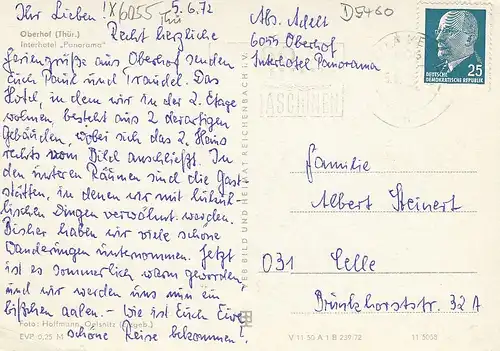 Ihr Lieben
IX6055 Thü
5.6.72
Oberhof (Thür.)
Interhotel "Panorama"
Recht herzliche
Feriengrüße aus Oberhof senden
Euch Paul und Traudel. Das
Hotel, in dem wir in der 2. Etage
wohnen, besteht aus 2 derartigen
Gebäuden, wobei sich das 2. Haus
rechts vom Bild anschließt. In
den unteren Räumen sind die Gast-
stätten, in denen wir mit kulina-
rischen Dingen verwöhnt werden.
Bisher haben wir viele schöne
Wanderungen unternommen. Jetzt
ist es sommerlich warm geworden,
und wir werden uns nun ein
bißchen aalen. – Wie ist Euch Eure
schöne Reise bekommen?
Foto: Hoffmann, Oelsnitz (Erzgeb.)
EVP 0,25 M
VEB BILD UND HEIMAT REICHENBACH I. V.
Abs. Adelt
6055 Oberhof
Interhotel Panorama
D5460
ASCHINEN
25
DEUTSCHE
DEMOKRATISCHE REPUBLIK
Familie
Albert Steinert
031 Celle
Brinkhorststr. 32A
V 11 50 A 1 B 239/72
11 5068